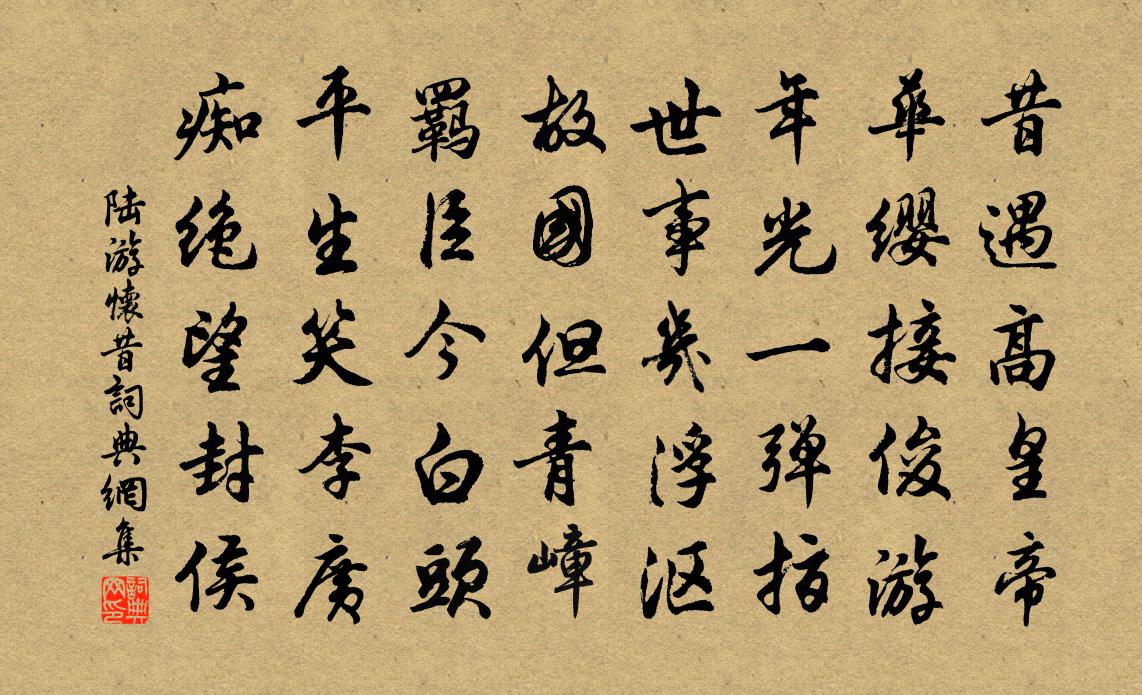 昔遇高皇帝
華纓接俊游
年光一弹指
世事幾浮沤
故國但青嶂
羈臣今白頭
平生笑李廣
痴绝望封侯
陆游懷昔詞典網集
詞典网印